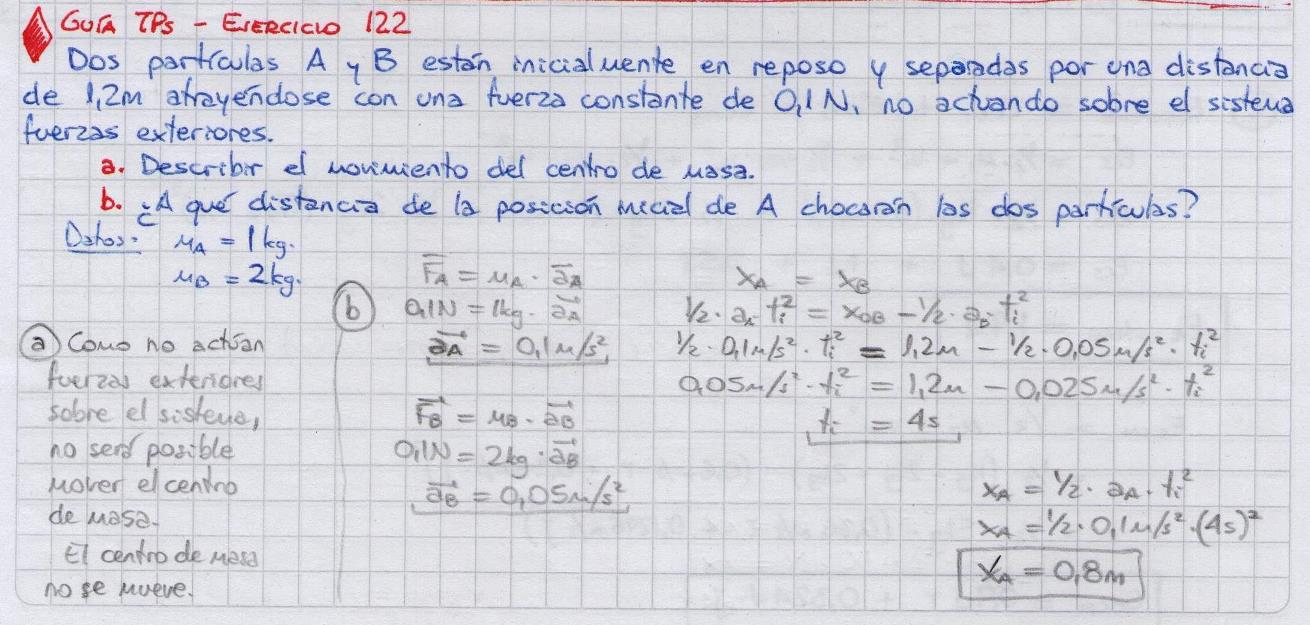 GUÍA TPs - EJERCICIO 122
Dos partículas A y B están inicialmente en reposo y separadas por una distancia
de 1,2m atrayéndose con una fuerza constante de 0,1N, no actuando sobre el sistema
fuerzas exteriores.
a. Describir el movimiento del centro de masa.
b. ¿A qué distancia de la posición inicial de A chocarán las dos partículas?
Datos: mA = 1kg.
mB = 2kg.
a Como no actúan
fuerzas exteriores
sobre el sistema,
no será posible
mover el centro
de masa.
El centro de masa
no se mueve.
b
FA = mA · aA
0,1N = 1kg · aA
aA = 0,1m/s²
FB = mB · aB
0,1N = 2kg · aB
aB = 0,05m/s²
xA = xB
1/2 · aA · ti² = x0B - 1/2 · aB · ti²
1/2 · 0,1m/s² · ti² = 1,2m - 1/2 · 0,05m/s² · ti²
0,05m/s² · ti² = 1,2m - 0,025m/s² · ti²
ti = 4s
xA = 1/2 · aA · ti²
xA = 1/2 · 0,1m/s² · (4s)²
xA = 0,8m